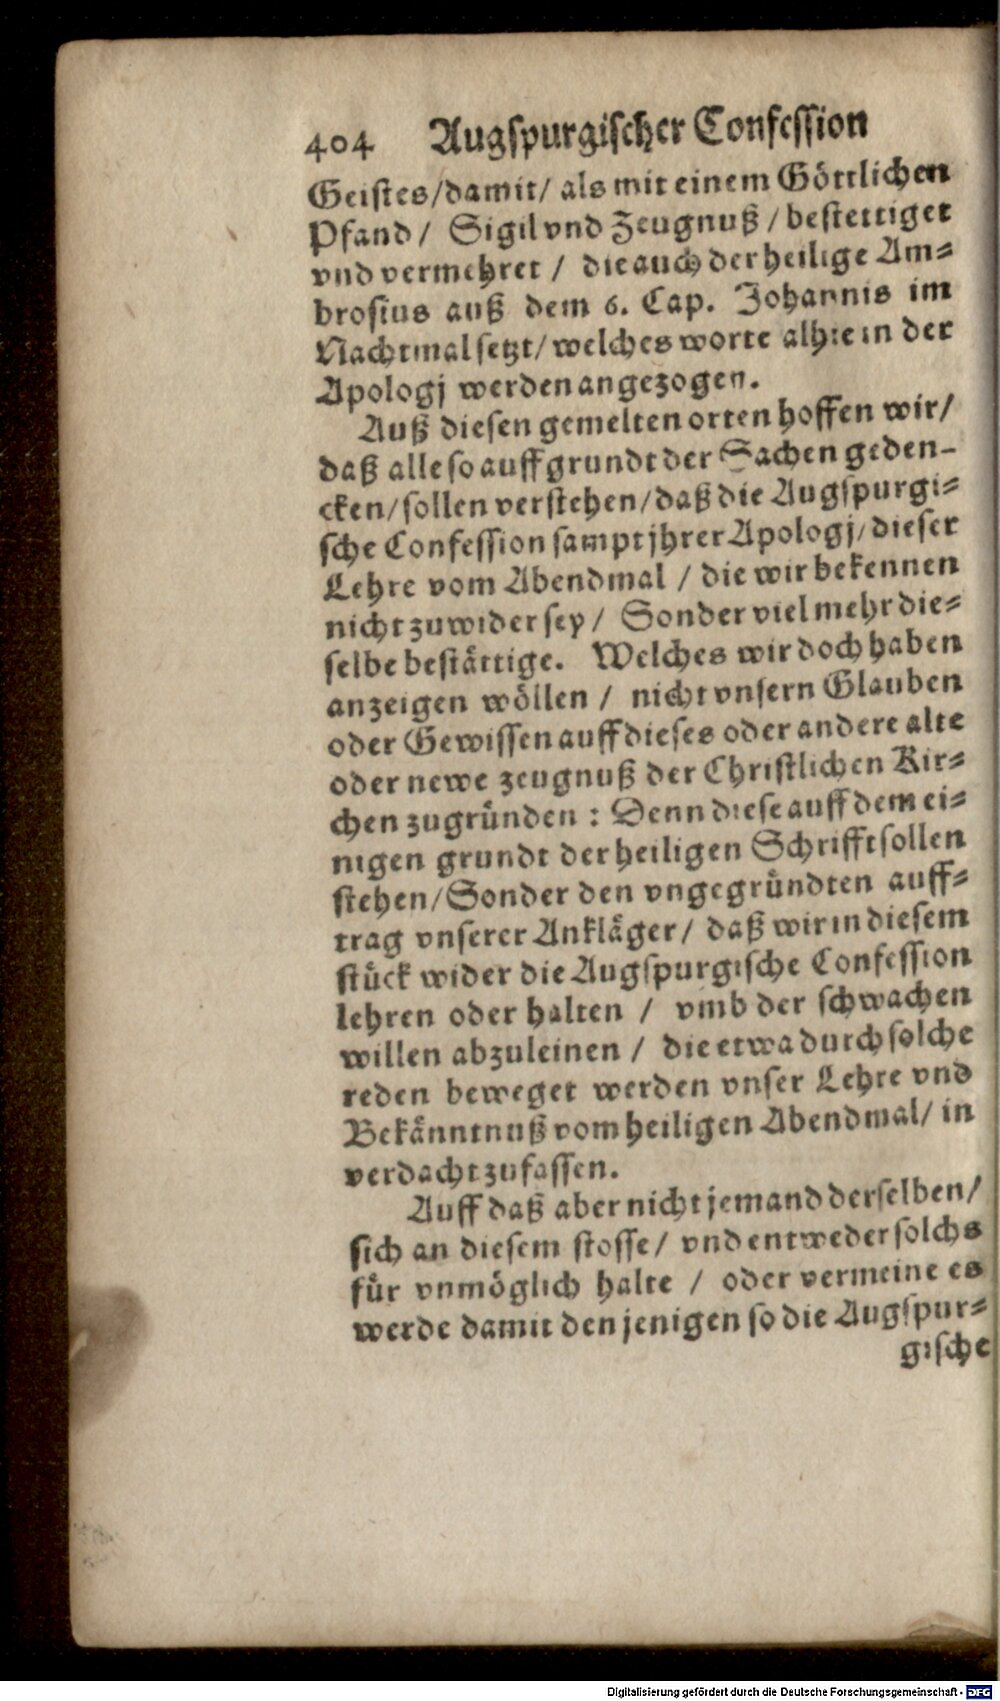 404 Augspurgischer Confession
Geistes/damit/ als mit einem Göttlichen
Pfand/ Sigil vnd Zeugnuß/bestettiget
vnd vermehret/ die auch der heilige Am=
brosius auß dem 6. Cap. Johannis im
Nachtmal setzt/welches worte alhie in der
Apologj werden angezogen.
Auß diesen gemelten orten hoffen wir/
daß alle so auff grundt der Sachen geden-
cken/sollen verstehen/daß die Augspurgi=
sche Confession sampt jhrer Apologj/dieser
Lehre vom Abendmal / die wir bekennen
nicht zuwider sey/ Sonder viel mehr die=
selbe bestättige. Welches wir doch haben
anzeigen wöllen / nicht vnsern Glauben
oder Gewissen auff dieses oder andere alte
oder newe zeugnuß der Christlichen Kir=
chen zugründen: Denn diese auff dem ei=
nigen grundt der heiligen Schrifft sollen
stehen/Sonder den vngegründten auff=
trag vnserer Ankläger/ daß wir in diesem
stück wider die Augspurgische Confession
lehren oder halten / vmb der schwachen
willen abzuleinen / die etwa durch solche
reden beweget werden vnser Lehre vnd
Bekänntnuß vom heiligen Abendmal/ in
verdacht zufassen.
Auff daß aber nicht jemand derselben/
sich an diesem stosse/ vnd entweder solchs
für vnmöglich halte / oder vermeine es
werde damit den jenigen so die Augspur=
gische
Digitalisierung gefördert durch die Deutsche Forschungsgemeinschaft - DFG